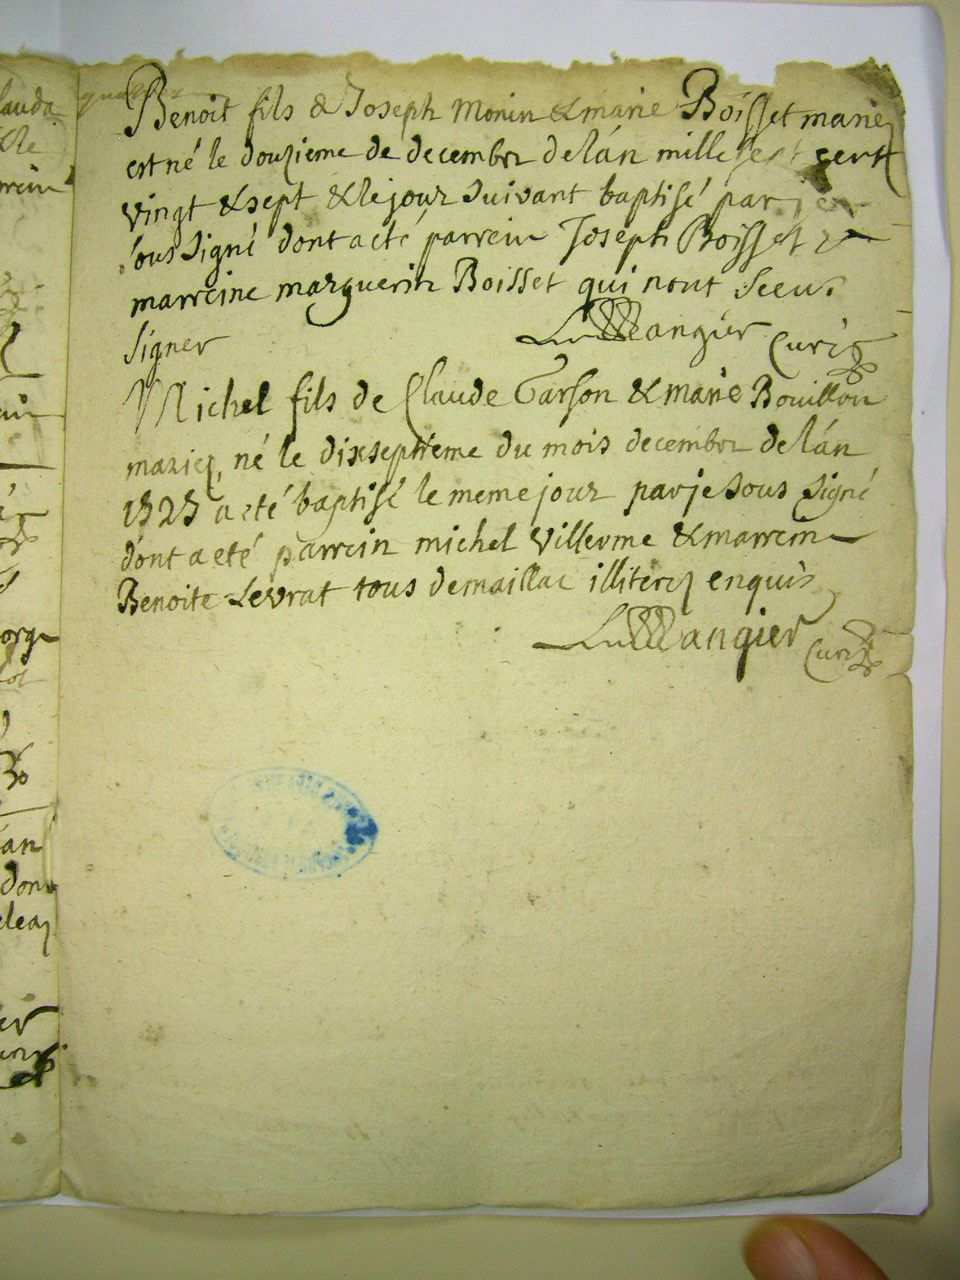 Benoit fils de Joseph Monin & marie Boisset mariez
est né le douzieme de decembre de lán mille sept cent
vingt & sept & le jour suivant baptisé par je
sous signé dont a eté parrein Joseph Boisset &
marreine marguerite Boisset qui nont sceu
signer Mangier Curé
Michel fils de Claude Garson & marie Bouillon
mariez, né le dixseptieme du mois decembre de lán
1727 a eté baptisé le meme jour par je sous signé
dont a eté parrein michel Villerme & marreine
Benoite Levrat tous de maillac illiterez enquis
Mangier Curé